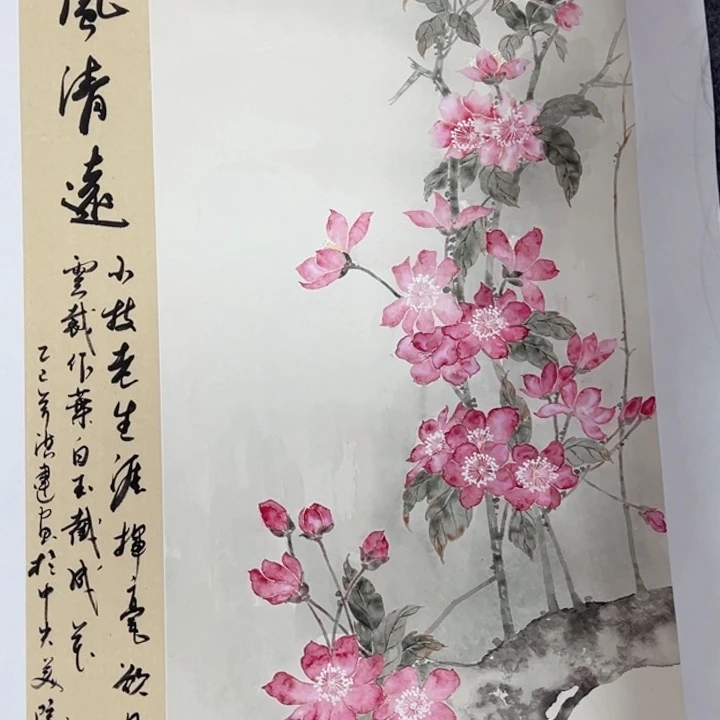 風清遠
小枝老生涯揮毫欲
雲裁作葉白玉截成花
乙巳年洪建畫於中央美院